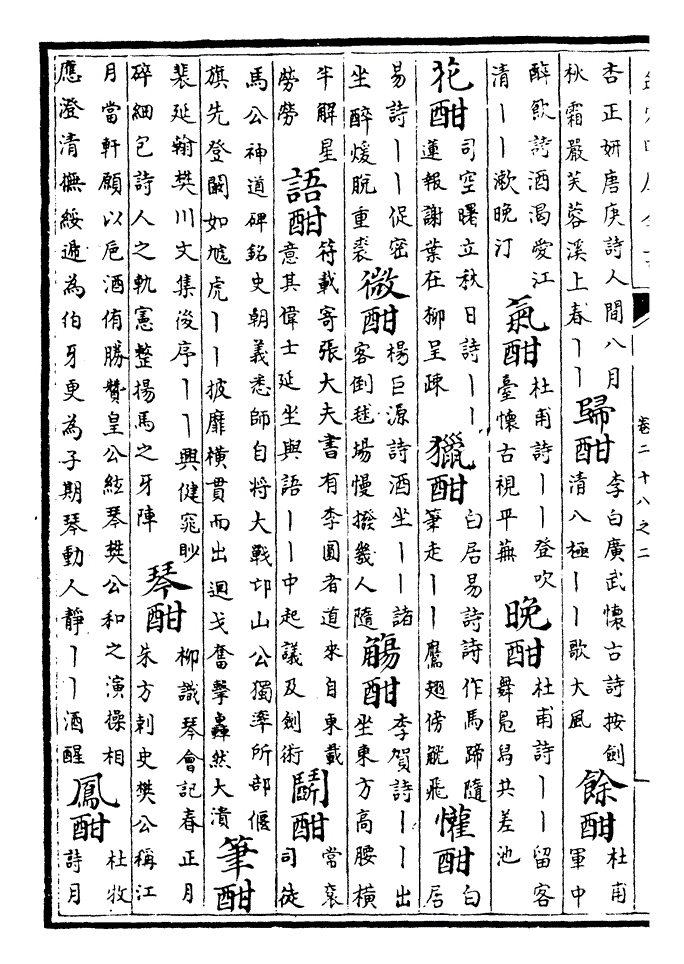 卷二十八之二
杏正妍唐庚詩人間八月
秋霜嚴芙蓉溪上春丨丨
歸酣
李白廣武懷古詩按劍
清八極丨丨歌大風
餘酣
杜甫
軍中
醉飲詩酒渴愛江
清丨丨漱晚汀
氣酣
杜甫詩丨丨登吹
臺懷古視平蕪
晚酣
杜甫詩丨丨留客
舞鳧舄共差池
花酣
司空曙立秋日詩丨丨
蓮報謝葉在柳呈疎
獵酣
白居易詩詩作馬蹄隨
筆走丨丨鷹翅傍觥飛
懽酣
白
居
易詩丨丨促密
坐醉煖脫重裘
微酣
楊巨源詩酒坐丨丨諸
客倒毬場慢撥幾人隨
觴酣
李賀詩丨丨出
坐東方高腰橫
半解星
勞勞
語酣
符載寄張大夫書有李圓者道來自東載
意其偉士延坐與語丨丨中起議及劍術
鬭酣
常袞
司徒
馬公神道碑銘史朝義悉師自將大戰邙山公獨率所部偃
旗先登闞如虓虎丨丨披靡橫貫而出迴戈奮擊轟然大潰
筆酣
裴延翰樊川文集後序丨丨興健窕眇
碎細包詩人之軌憲整揚馬之牙陣
琴酣
柳識琴會記春正月
朱方刺史樊公稱江
月當軒願以卮酒侑勝贊皇公絃琴樊公和之演操相
應澄清撫綏遞為伯牙更為子期琴動人靜丨丨酒醒
鳳酣
杜牧
詩月